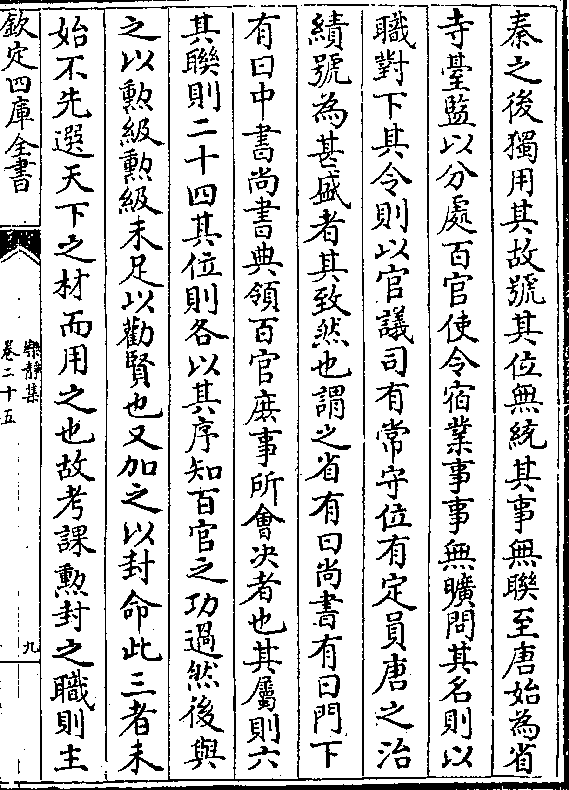 秦之後獨用其故號其位無統其事無聯至唐始為省
寺臺監以分處百官使令宿業事事無曠問其名則以
職對下其令則以官議司有常守位有定員唐之治
績號為甚盛者其致然也謂之省有曰尚書有曰門下
有曰中書尚書典領百官庶事所會决者也其屬則六
其聯則二十四其位則各以其序知百官之功過然後與
之以勲級勲級未足以勸賢也又加之以封命此三者未
始不先選天下之材而用之也故考課勲封之職則主
欽定四庫全書
樂靜集
卷二十五
九